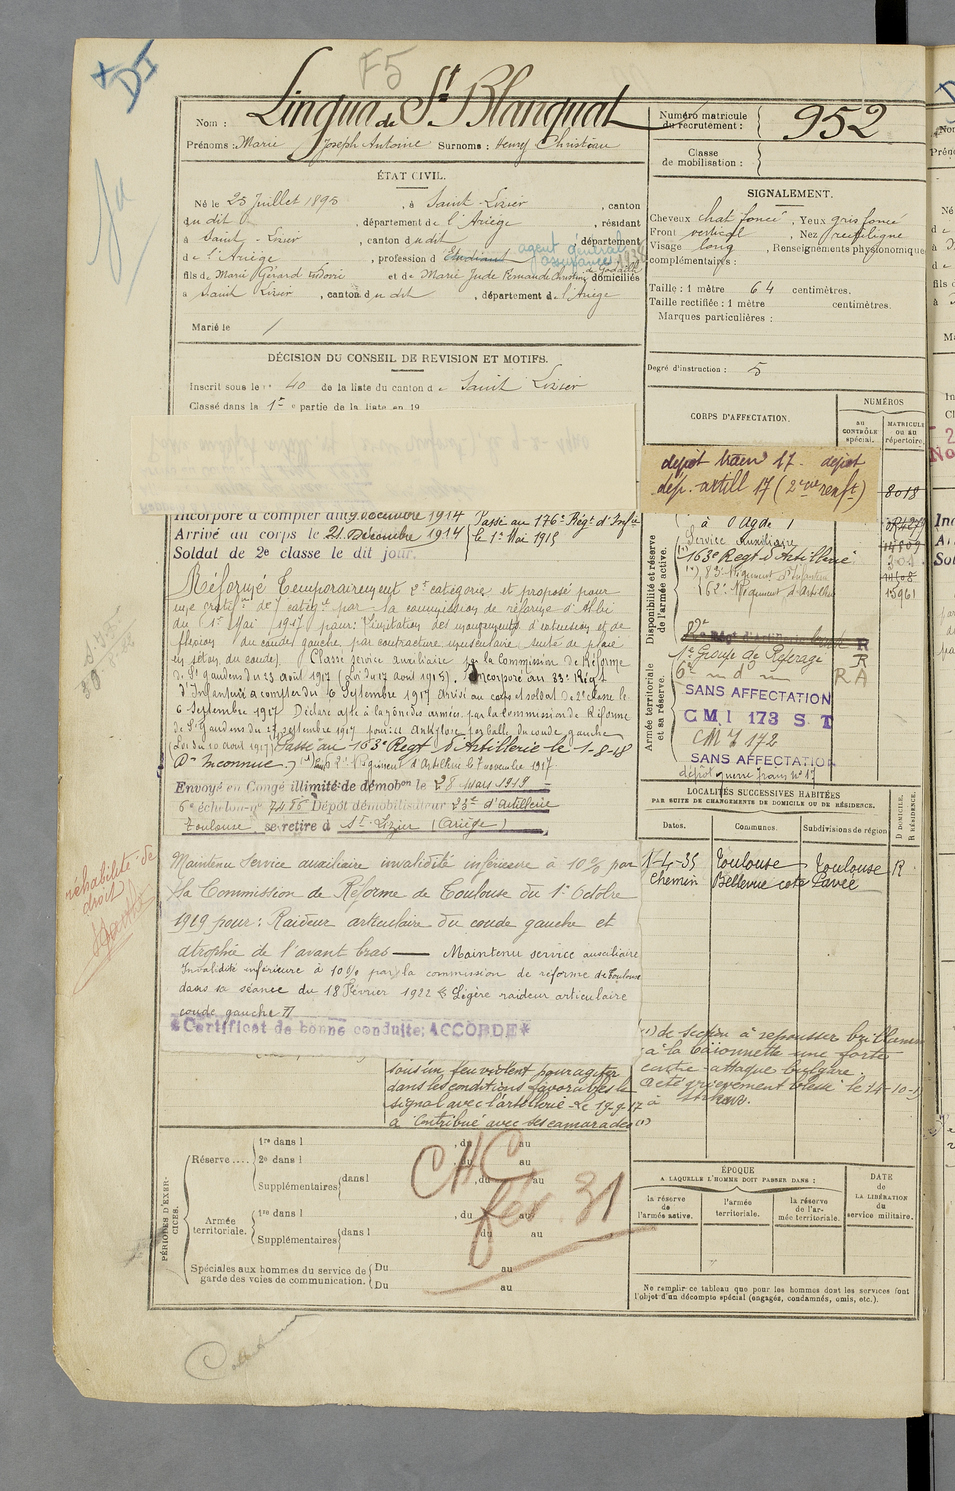 F5
DI
Nom : Lingua de St Blanquat
Prénoms : Marie Joseph Antoine Surnoms : Henry Christian
Numéro matricule du recrutement : 952
Classe de mobilisation :
ÉTAT CIVIL.
Né le 25 Juillet 1895, à Saint-Lizier, canton
du dit, département de l'Ariège, résidant
à Saint-Lizier, canton du dit, département
de l'Ariège, profession d'Etudiant agent général assurances
fils de Marie Gérard Isidore et de Marie Jude Fernande Christine domiciliés
à Saint Lizier, canton du dit, département de l'Ariège
Marié le
SIGNALEMENT.
Cheveux chat foncé. Yeux gris foncé
Front vertical. Nez rectiligne
Visage long, Renseignements physionomiques
complémentaires :
Taille : 1 mètre 64 centimètres.
Taille rectifiée : 1 mètre centimètres.
Marques particulières :
Degré d'instruction : 5
DÉCISION DU CONSEIL DE REVISION ET MOTIFS.
Inscrit sous le n° 40 de la liste du canton de Saint Lizier
Classé dans la 1re partie de la liste en 19
CORPS D'AFFECTATION.
NUMÉROS
AU CONTRÔLE spécial.
MATRICULE ou au répertoire.
dépôt train 17. dépôt
dép. artill 17 (2eme renft)
8018
Incorporé à compter du 19 décembre 1914
Arrivé au corps le 21 Décembre 1914
Soldat de 2e classe le dit jour.
Passé au 176e Régt d'Infie
le 1er Mai 1915
Réformé Temporairement 2e catégorie et proposé pour
une gratifon de 7e catégie par la commission de réforme d'Albi
du 1er Mai 1917 pour : limitation des mouvements d'extension et de
flexion du coude gauche par contracture musculaire, suite de plaie
en séton du coude). Classé service auxiliaire par la Commission de Réforme
de St Gaudens du 23 août 1917 (Loi du 17 août 1915). Incorporé au 83e Régt
d'Infanterie à compter du 6 Septembre 1917. Arrivé au corps et soldat de 2e classe le
6 Septembre 1917. Déclaré apte à la zône des armées par la Commission de Réforme
de St Gaudens du 17 septembre 1917 pour : ankylose par balle du coude gauche
Passé au 163e Regt d'Artillerie le 1-8-18
Don Inconnue
Passé 2e Régiment d'Artillerie le 7 novembre 1917
Envoyé en Congé illimité de démobon le 28 Mars 1919
6e échelon n° Dépôt démobilisateur 23e d'Artillerie
Toulouse, se retire à St Lizier (Ariège)
à Agde
Service Auxiliaire
163e Regt d'Artillerie
83e Régiment d'Infanterie
Régiment d'Artillerie
15961
Disponibilité et réserve de l'armée active.
1er Groupe de Repérage R
R A
SANS AFFECTATION
C M I 173 S T
C M I 172
SANS AFFECTATION
dépôt guerre train n° 17
Armée territoriale et sa réserve.
LOCALITÉS SUCCESSIVES HABITÉES
PAR SUITE DE CHANGEMENTS DE DOMICILE OU DE RÉSIDENCE.
Dates.
Communes.
Subdivisions de région
D DOMICILE. R RÉSIDENCE.
1-4-35 Toulouse Toulouse R
Chemin Bellevue cote Pavée
réhabilité de
droit
Maintenu service auxiliaire invalidité inférieure à 10% par
la Commission de Réforme de Toulouse du 1er Octobre
1919 pour : Raideur articulaire du coude gauche et
atrophie de l'avant bras — Maintenu service auxiliaire
Invalidité inférieure à 10% par la commission de réforme de Toulouse
dans sa séance du 18 Février 1922 Légère raideur articulaire
coude gauche
*Certificat de bonne conduite: ACCORDÉ*
sous un feu violent pour agiter
dans les conditions favorables le
signal avec l'artillerie. Le 19-9-17
à contribué avec ses camarades (1)
(1) de section à repousser brillamment
à la baïonnette une forte
contre-attaque bulgare.
A été grièvement blessé le 14-10-1
à
PÉRIODES D'EXERCICES.
Réserve....
1re dans l , du au
2e dans l , du au
Supplémentaires dans l , du au
Armée territoriale.
1re dans l , du au
Supplémentaires dans l , du au
Spéciales aux hommes du service de
garde des voies de communication.
Du au
Du au
CHC
fév. 31
ÉPOQUE
A LAQUELLE L'HOMME DOIT PASSER DANS :
la réserve de l'armée active.
l'armée territoriale.
la réserve de l'armée territoriale.
DATE de LA LIBÉRATION du service militaire.
Ne remplir ce tableau que pour les hommes dont les services font
l'objet d'un décompte spécial (engagés, condamnés, omis, etc.).